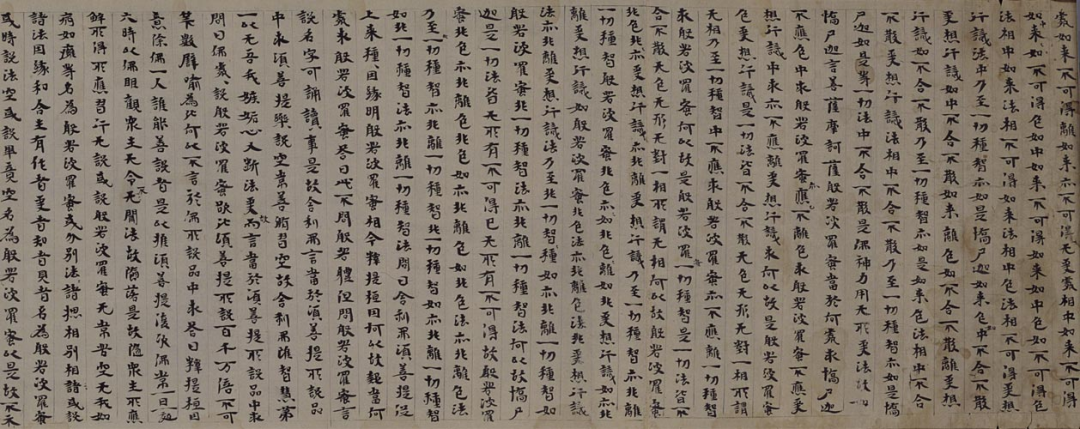 處如不可得離如來亦不可得无處相中如來不可得
如來如不可得色如中如來不可得如來如中色如不可得色
法相中如來法相不可得如來法相中色法相不可得受想
行識法中乃至一切種智亦如是憍尸迦如來色中不合不散
受想行識如中不合不散如來離色如不合不散離受想
行識如不合不散乃至一切種智亦如是如來色法相中不合
不散乃至一切種智亦如是憍
尸迦如是等一切法中不合不散是佛神力用无所受法故
憍尸迦言菩薩摩訶薩般若波羅蜜當於何處求憍尸迦
不應色中求般若波羅蜜亦不應離色求般若波羅蜜不應受
想行識中求亦不應離受想行識求何以故是般若波羅蜜
色受想行識是一切法皆不合不散无色无形无對一相所謂
无相乃至一切種智中不應求般若波羅蜜亦不應離一切種智
求般若波羅蜜何以故是般若波羅蜜一切種智是一切法皆不
合不散无色无形无對一相所謂无相何以故般若波羅蜜
非色亦非離色非受想行識亦非離受想行識乃至一切種智亦非離
一切種智般若波羅蜜非色如亦非離色如非受想行識如亦非
離受想行識如般若波羅蜜非色法亦非離色法非受想行識
法亦非離受想行識法乃至非一切種智如亦非離一切種智如
般若波羅蜜非一切種智法亦非離一切種智法何以故憍尸
迦是一切法皆无所有不可得已无所有不可得故般若波羅
蜜非色亦非離色非色如亦非離色如非色法亦非離色法
乃至一切種智亦非離一切種智非一切種智如亦非離一切種智
如非一切種智法亦非離一切種智法問曰舍利弗須菩提從
上來種種因緣明般若波羅蜜相今釋提桓因何以故問當何
處求般若波羅蜜答曰此不問般若體但問般若波羅蜜言
說名字可誦讀事是故舍利弗言當於須菩提所說品
中求須菩提樂說空常善修習空故舍利弗雖智慧第
一以无吾我嫉妬心大斷法愛故而言當於須菩提所說品中求
問曰佛處處說般若波羅蜜欲比須菩提所說百千万倍不可
算數譬喻為比何以不言於佛所說品中求答曰釋提桓因
意除佛一人誰能善說者是以推須菩提復次佛常一日一夜
六時以佛眼觀眾生无令不聞法故墮落是故隨眾生所應
解所得所應習行无說或說般若波羅蜜无常苦空无我如
病如癰等名為般若波羅蜜或分別諸法總相別相或說
諸法因緣和合生有作者受者知者見者名為般若波羅蜜
或時說法空或說畢竟空名為般若波羅蜜以是故不示